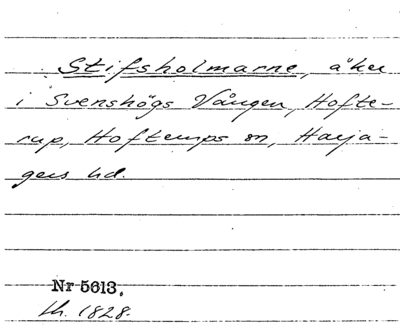 Stifsholmarne, åker
i Svenshögs Vången, Hofte-
rup, Hofterups sn, Harja-
gers hd.
Nr 5613.
lh. 1828.